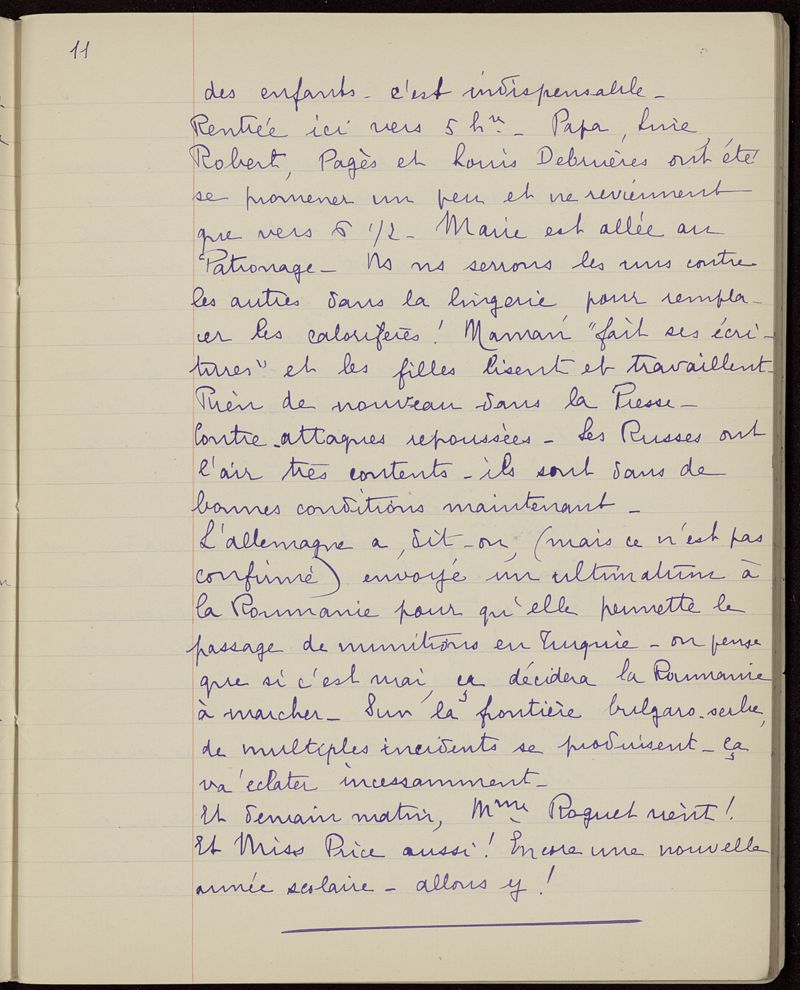 11
des enfants - c'est indispensable -
Rentrée ici vers 5 hres - Papa, Lucie,
Robert, Pagès et Louis Debruères ont été
se promener un peu et ne reviennent
que vers 6 1/2 - Marie est allée au
"Patronage - Ns ns serrons les uns contre
les autres dans la lingerie pour rempla-
cer les calorifères! Maman "fait ses écri-
tures" et les filles lisent et travaillent -
Rien de nouveau dans la Presse -
Contre-attaques repoussées - Les Russes ont
l'air très contents - ils sont dans de
bonnes conditions maintenant -
L'allemagne a, dit-on, (mais ce n'est pas
confirmé) envoyé un ultimatum à
la Roumanie pour qu'elle permette le
passage de munitions en Turquie - on pense
que si c'est vrai, ça décidera la Roumanie
à marcher - Sur la frontière bulgaro-serbe,
de multiples incidents se produisent - ça
va éclater incessamment -
Et demain matin, Mme Roguet vient!
Et Miss Price aussi! Encore une nouvelle
année scolaire - allons y!